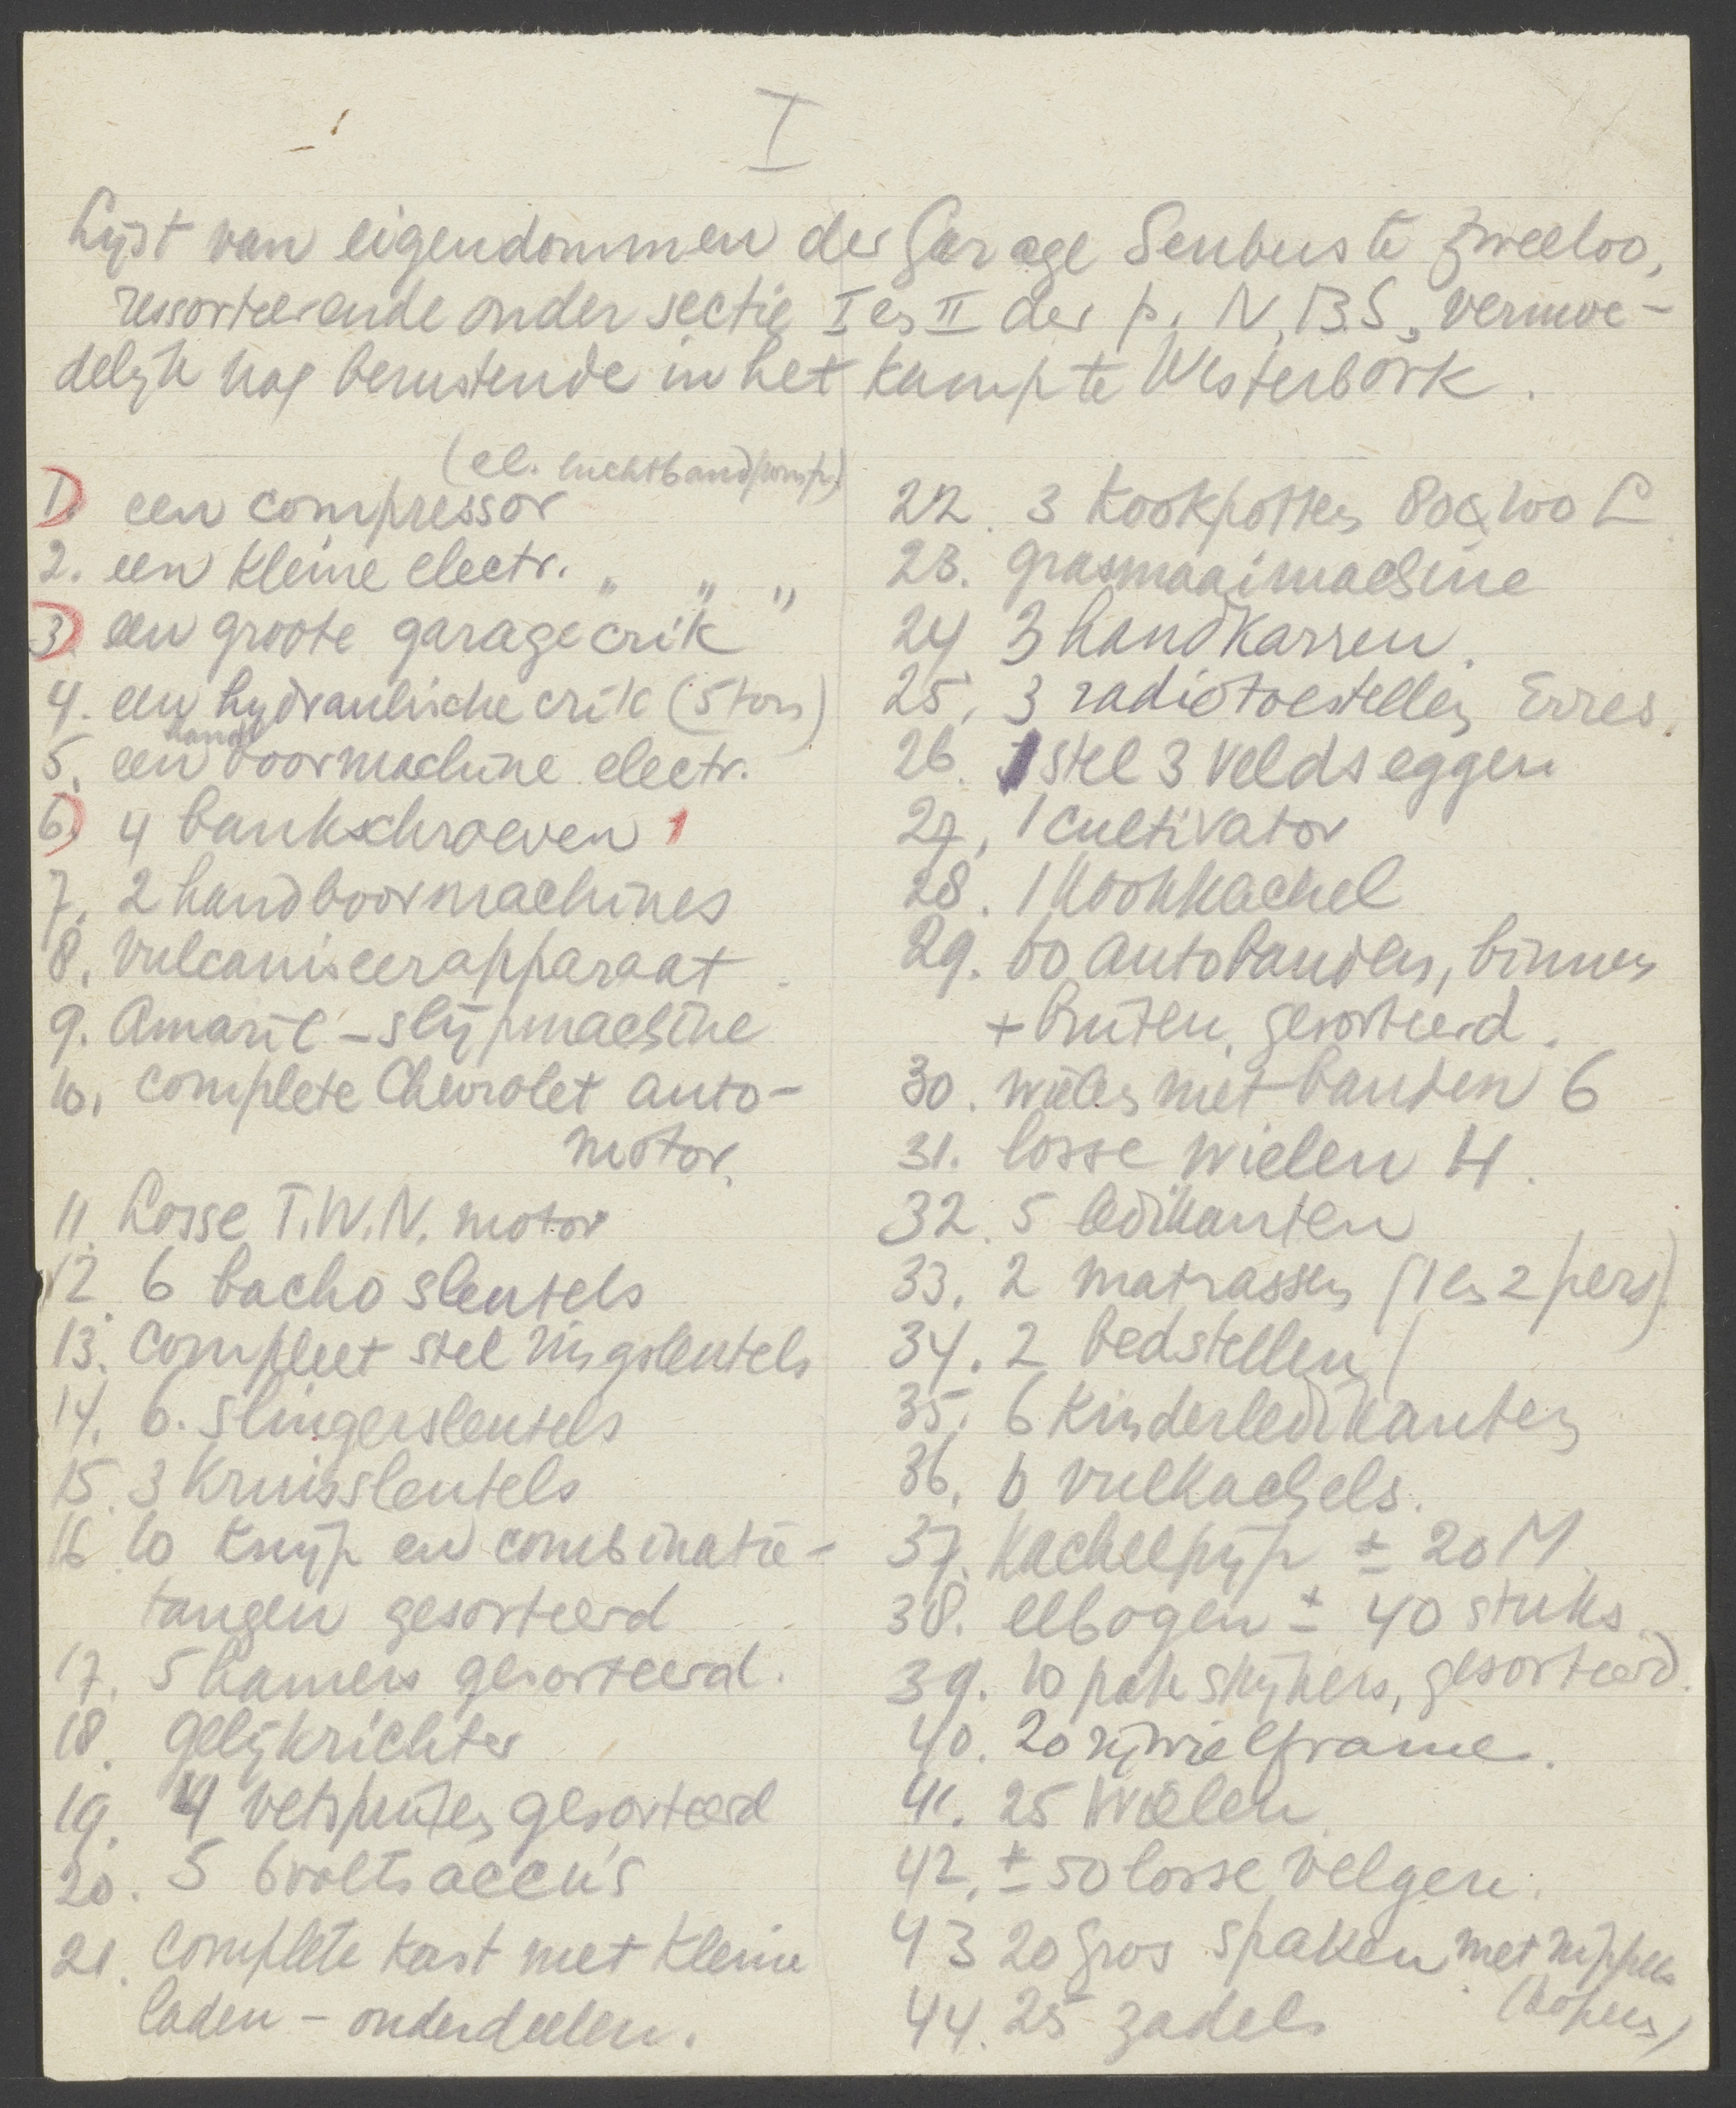 I
Lijst van eigendommen der Garage Senbus te Zweeloo,
ressorteerende onder sectie I en II der p. N.B.S., vermoe-
delijk nog berustende in het kamp te Westerbork.
(el. luchtbandpomp)
1. een compressor
2. een kleine electr. " " "
3. een groote garagecrik
4. een hydraulische crik (5 ton)
hand
5. een boormachine electr.
6. 4 bankschroeven 1
7. 2 handboormachines
8. vulcaniseerapparaat
9. Amaril-slijpmachine
10. complete Chevrolet auto-
motor.
11. Losse T.W.N. motor
12. 6 bacho sleutels
13. Compleet stel ringsleutels
14. 6. slingersleutels
15. 3 kruissleutels
16. 10 knijp en combinatie-
tangen gesorteerd
17. 5 hamers gesorteerd.
18. gelijkrichter
19. 4 vetspuiten gesorteerd
20. 5 6volts accu's
21. complete kast met kleine
laden - onderdeelen.
22. 3 kookpotten 80 & 100 L
23. grasmaaimachine
24 3 handkarren.
25. 3 radiotoestellen Erres.
26. 1 stel 3 velds eggen
27. 1 cultivator
28. 1 kookkachel
29. 60 autobanden, binnen
+ buiten, gesorteerd.
30. wielen met banden 6
31. losse wielen 4.
32. 5 ledikanten
33. 2 matrassen (1 en 2 pers).
34. 2 bedstellen /
35. 6 kinderledikanten
36. 6 vulkachels.
37. kachelpijp ± 20 M.
38. elbogen ± 40 stuks
39. 10 pak spijkers, gesorteerd.
40. 20 rijwielframe.
41. 25 wielen.
42. ± 50 losse velgen.
43 20 gros spaken met nippels
(kopers)
44. 25 zadels